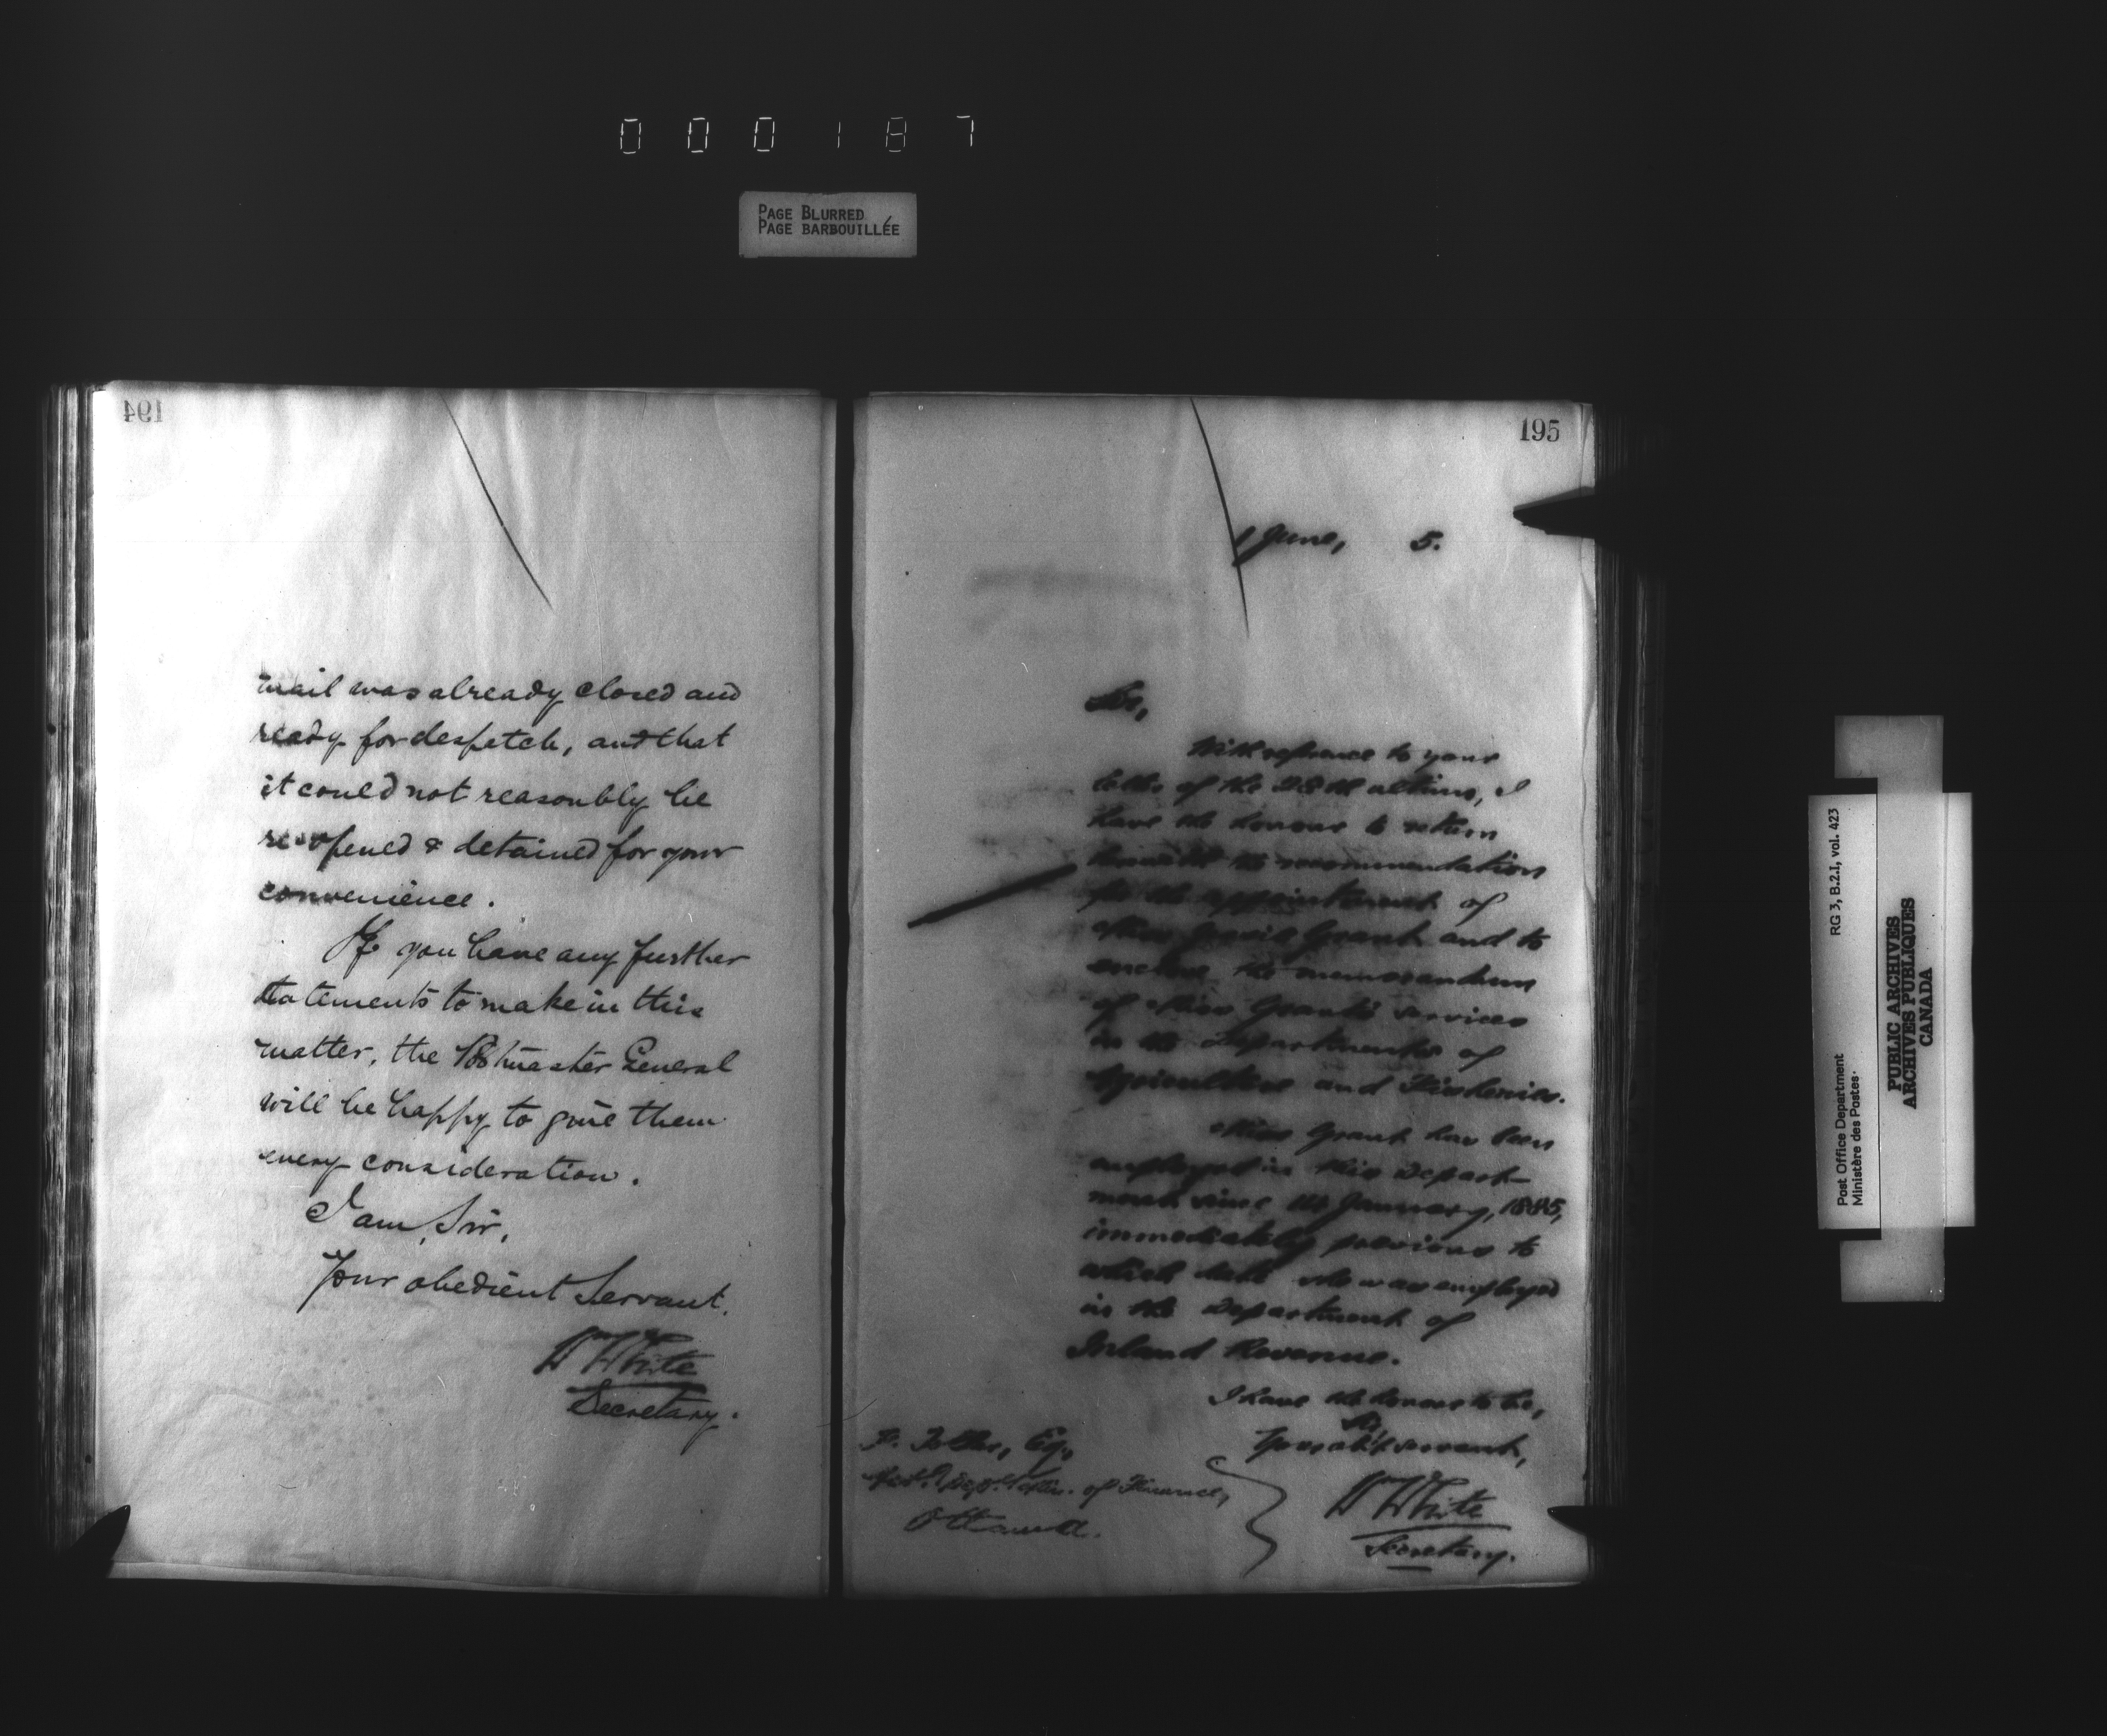 000187
PAGE BLURRED
PAGE BARBOUILLÉE
194
mail was already closed and
ready for despatch, and that
it could not reasonably be
re-opened & detained for your
convenience.
If you have any further
statements to make in this
matter, the Postmaster General
will be happy to give them
every consideration.
I am, Sir,
Your obedient Servant.
Wm White
Secretary.
195
1 June, 5.
Sir,
With reference to your
letter of the 28th ultimo, I
have the honour to return
herewith the recommendation
for the appointment of
Miss Grant and to
enclose the memorandum
of Miss Grant's services
in the Departments of
Agriculture and Fisheries.
Miss Grant has been
employed in this Depart-
ment since 1st January, 1885,
immediately previous to
which date she was employed
in the Department of
Inland Revenue.
I have the honour to be,
Sir,
Your obt servant,
Wm White
Secretary.
Esq.,
of Finance,
Ottawa.
Post Office Department
Ministère des Postes.
RG 3, B.2.I, vol. 423
PUBLIC ARCHIVES
ARCHIVES PUBLIQUES
CANADA